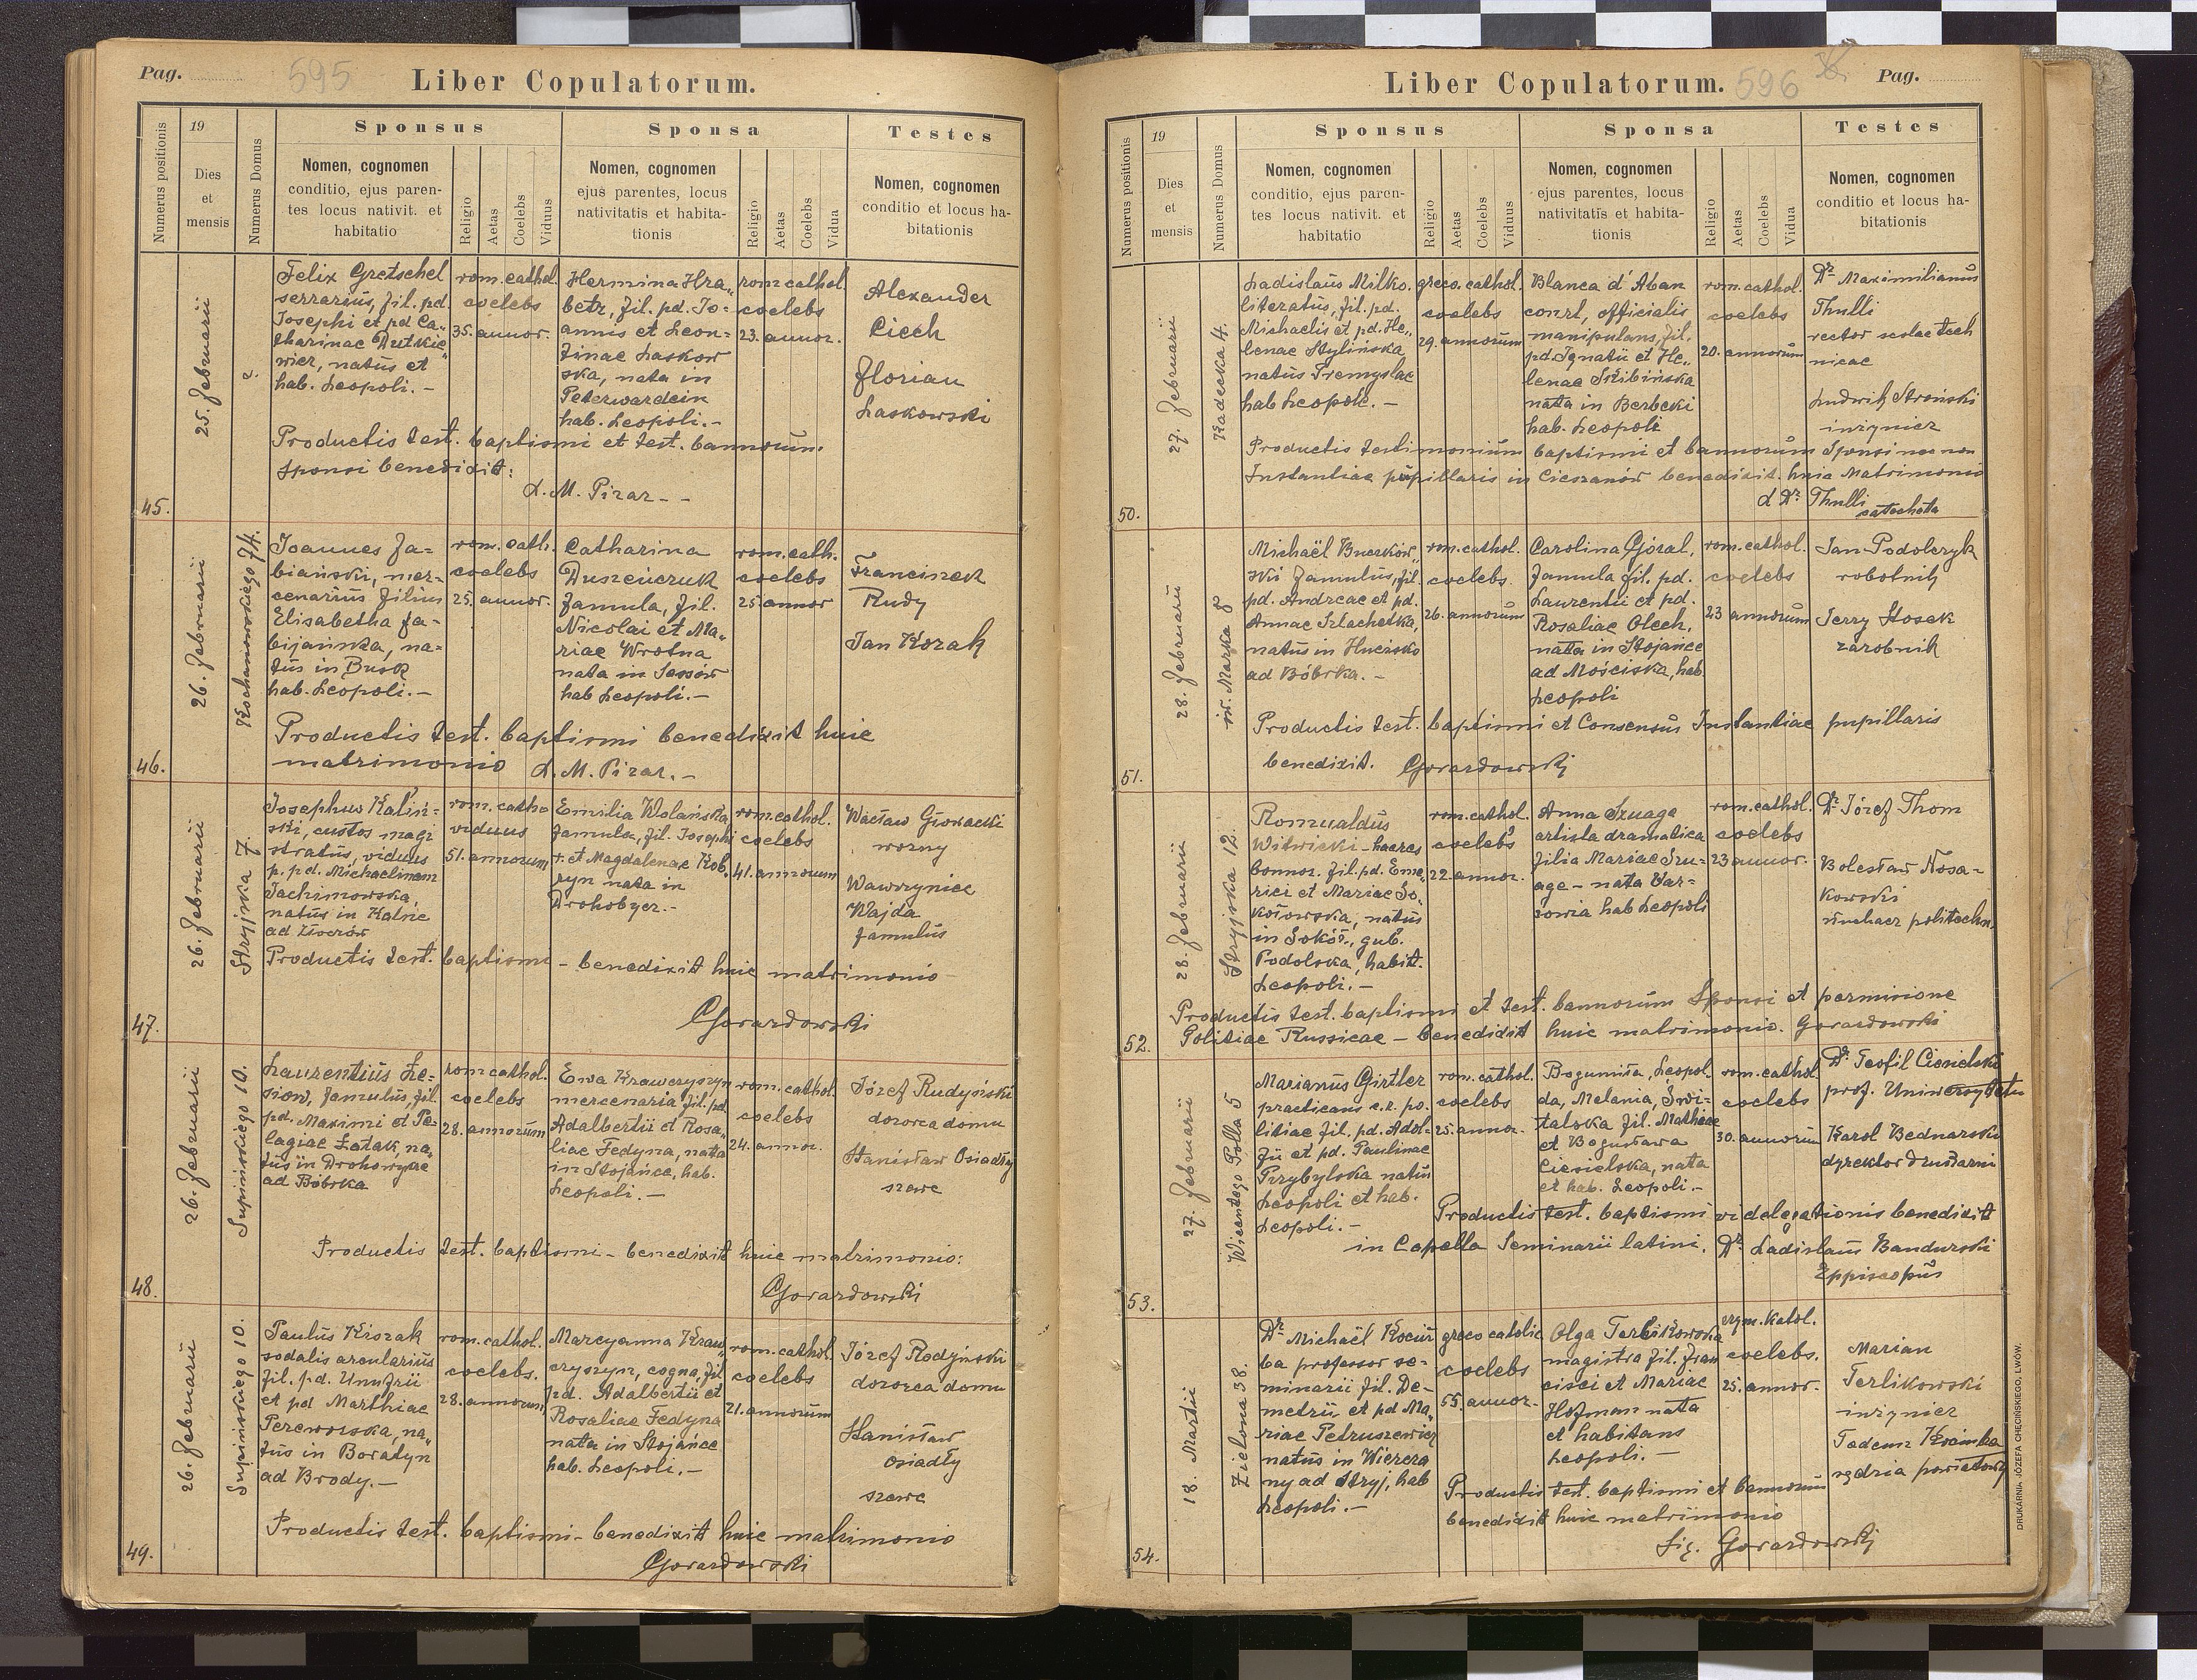 Pag.
595
Liber Copulatorum.
Numerus positionis
19
Dies
et
mensis
Numerus Domus
Sponsus
Nomen, cognomen
conditio, ejus paren-
tes locus nativit. et
habitatio
Religio
Aetas
Coelebs
Viduus
Sponsa
Nomen, cognomen
ejus parentes, locus
nativitatis et habita-
tionis
Religio
Aetas
Coelebs
Vidua
Testes
Nomen, cognomen
conditio et locus ha-
bitationis
45.
25. Februarii
Felix Gretschel
serrarius, fil. pd.
Josephi et pd Ca„
tharinae Dutkie„
wicz, natus et
hab. Leopoli. -
rom. cathol.
coelebs
35. annor.
Hermina Hra„
betz, fil. pd. Jo=
annis et Leon-
tinae Laskow
ska, nata in
Peterwardein
hab. Leopoli. -
rom cathol.
coelebs
23. annor.
Alexander
Ciech
Florian
Laskowski
Productis test. baptismi et test. bannorum
Sponsi benedixit:
X. M. Pizar - -
46.
26. Februarii
Kochanowskiego 74.
Joannes Za=
biański, mer-
cenarius filius
Elisabetha Za-
bijańska, na=
tus in Busk
hab. Leopoli. -
rom. cath.
coelebs
25. annor.
Catharina
famula, fil.
Nicolai et Ma„
riae Wrotna
nata in Sassów
hab Leopoli. -
rom. cath.
coelebs
25 annor
Franciszek
Rudy
Jan Kozak
Productis test. baptismi benedixit huic
matrimonio X. M. Pizar. -
47.
26. Februarii
Stryjska 7.
Josephus Kaliń-
ski, custos magi
stratus, viduus
p. pd. Michaelinam
Jachimowska,
natus in
ad
rom. catho
viduus
51. annorum
Emilia Wolańska
famula, fil. Josephi
+ et Magdalenae Kob„
ryn nata in
Drohobycz. -
rom. cathol.
coelebs
41. annorum
Wacław Głowacki
woźny
Wawrzyniec
Wajda
famulus
Productis test. baptismi - benedixit huic matrimonio
Gorazdowski
48.
26. Februarii
Supińskiego 10.
Laurentius Le=
sion, famulus, fil.
pd. Maximi et Pe-
lagiae Łatak, na„
tus in Drohowyże
ad Bóbrka
rom cathol.
coelebs
28. annorum
Ewa Krawczyszyn
mercenaria fil. pd.
Adalbertii et Rosa„
liae Fedyna, nata
in Stojańce, hab.
Leopoli. -
rom. cathol.
coelebs
24. annor.
Józef Rudyński
dozorca domu
Stanisław Osiadły
szewc
Productis test. baptismi - benedixit huic matrimonio:
Gorazdowski
49.
26. Februarii
Supińskiego 10.
Paulus Kiszak
sodalis arcularius
fil. pd. Unufrii
et pd Marthiae
Perewozska, na„
tus in Boratyn
ad Brody. -
rom. cathol.
coelebs.
28. annorum
Marcyanna Kraw„
czyszyn, cogna, fil
pd. Adalbertii et
Rosaliae Fedyna
nata in Stojańce
hab. Leopoli. -
rom. cathol.
coelebs
21. annorum
Józef Rodyński
dozorca domu
Stanisław
osiadły
szewc
Productis test. baptismi - benedixit huic matrimonio
Gorazdowski
Liber Copulatorum.
596
Pag.
Numerus positionis
19
Dies
et
mensis
Numerus Domus
Sponsus
Nomen, cognomen
conditio, ejus paren-
tes locus nativit. et
habitatio
Religio
Aetas
Coelebs
Viduus
Sponsa
Nomen, cognomen
ejus parentes, locus
nativitatis et habita-
tionis
Religio
Aetas
Coelebs
Vidua
Testes
Nomen, cognomen
conditio et locus ha-
bitationis
50.
27. Februarii
Kadecka 4.
Ladislaus Milko.
literatus, fil. pd.
Michaelis et pd. He„
lenae Stylińska
natus Premyslae
hab Leopole. -
greco. cathol.
coelebs
29. annorum
Blanca d'Aban
court, officialis
manipulans, fil.
pd. Ignatii et He„
lenae Skibińska
nata in
hab. Leopoli
rom. cathol.
coelebs
20. annorum
Dr Maximilianus
Thulli
rector scolae tech
nicae
Ludwik Stroński
inżynier
Productis testimonium baptismi et bannorum Sponsi nec non
Instantiae pupillaris in Cieszanów benedixit huic Matrimonio
X Dr Thulli
catecheta
51.
28. Februarii
św. Marka 8
Michaël Buczkow„
ski famulus, fil.
pd. Andreae et pd.
Annae Szlachetka,
natus in Hucisko
ad Bóbrka. -
rom. cathol.
coelebs.
26. annorum
Carolina Góral,
famula fil. pd.
Laurentii et pd.
Rosaliae Olech,
nata in Stojance
ad Mościska, hab
Leopoli
rom. cathol.
coelebs
23 annorum
Jan Podolczyk
robotnik
Jerzy Stosek
zarobnik
Productis test. baptismi et Consensus Instantiae pupillaris
benedixit. Gorazdowski
52.
28. Februarii
Stryjska 12.
Romualdus
Witwicki - haeres
bonnor. fil. pd. Eme„
rici et Mariae So„
kołowska, natus
in Sokół., gub.
Podolska, habit.
Leopoli. -
rom. cathol.
coelebs
22. annor.
Anna Szuage
artista dramatica
filia Mariae Szu-
age - nata Var=
sovia hab Leopoli
rom. cathol.
coelebs
23 annor.
Dr Józef Thom
Bolesław Nosa-
kowski
słuchacz politechn.
Productis test. baptismi et test. bannorum Sponsi et permissione
Politiae Russicae - benedixit huic matrimonio. Gorazdowski
53.
27. Februarii
Wincentego Polla 5
Marianus Girtler
practicans c. r. po.
litiae fil. pd. Adol-
fii et pd. Paulinae
Przybylska natus
Leopoli et hab.
Leopoli. -
rom. cathol.
coelebs
25. annor.
Bogumiła, Leopol.
da, Melania, Świ-
talska fil. Mathiae
et Bogusława
Ciesielska, nata
et hab. Leopoli. -
rom. cathol.
coelebs
30. annorum
Dr Teofil Ciesielski
prof. Uniwersytetu
Karol Bednarski
dyrektor drukarni
Productis test. baptismi vi delegationis benedixit
in Capella Seminarii latini. Dr. Ladislaus Bandurski
Eppiscopus
54.
18. Martii
Zielona 38.
Dr Michaël Kociu
ba professor se-
minarii fil. De-
metrii et pd Ma„
riae Petruszewicz
natus in Wiercza
ny ad Stryj, hab
Leopoli. -
greco catolic
coelebs
55. annor.
Olga Terlikowska
magistra fil. Fran
cisci et Mariae
Hofman nata
et habitans
Leopoli. -
rzym. katol.
coelebs.
25. annor.
Marian
Terlikowski
inżynier
Tadeusz
sędzia powiatowy
Productis test. baptismi et bannorum
benedixit huic matrimonio
Sig. Gorazdowski
DRUKARNIA JÓZEFA CHĘCIŃSKIEGO, LWÓW.